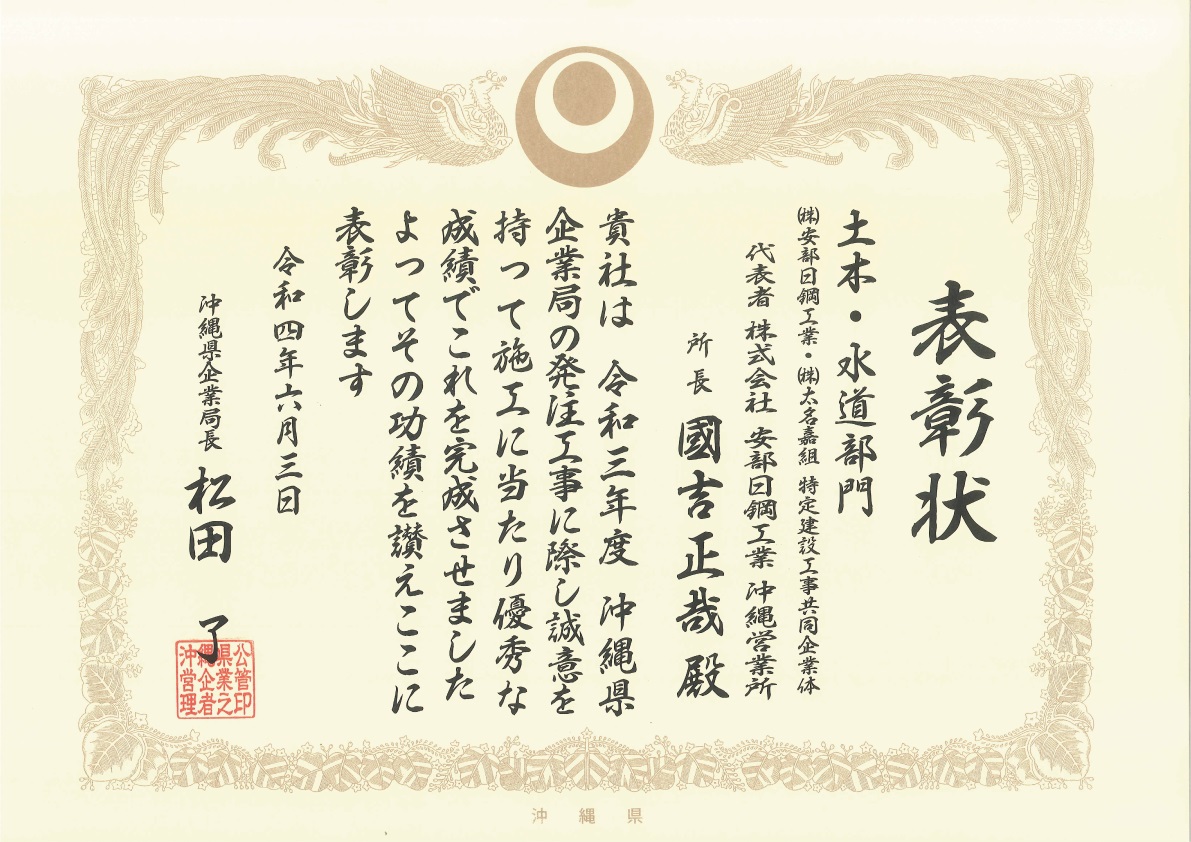 表彰状
土木・水道部門
㈱安部日鋼工業・㈱太名嘉組 特定建設工事共同企業体
代表者 株式会社 安部日鋼工業 沖縄営業所
所長 國吉正哉 殿
貴社は 令和三年度 沖縄県
企業局の発注工事に際し誠意を
持って施工に当たり優秀な
成績でこれを完成させました
よってその功績を讃えここに
表彰します
令和四年六月三日
沖縄県企業局長 松田 了
公管印
県業之
縄企者
沖営理
沖縄県